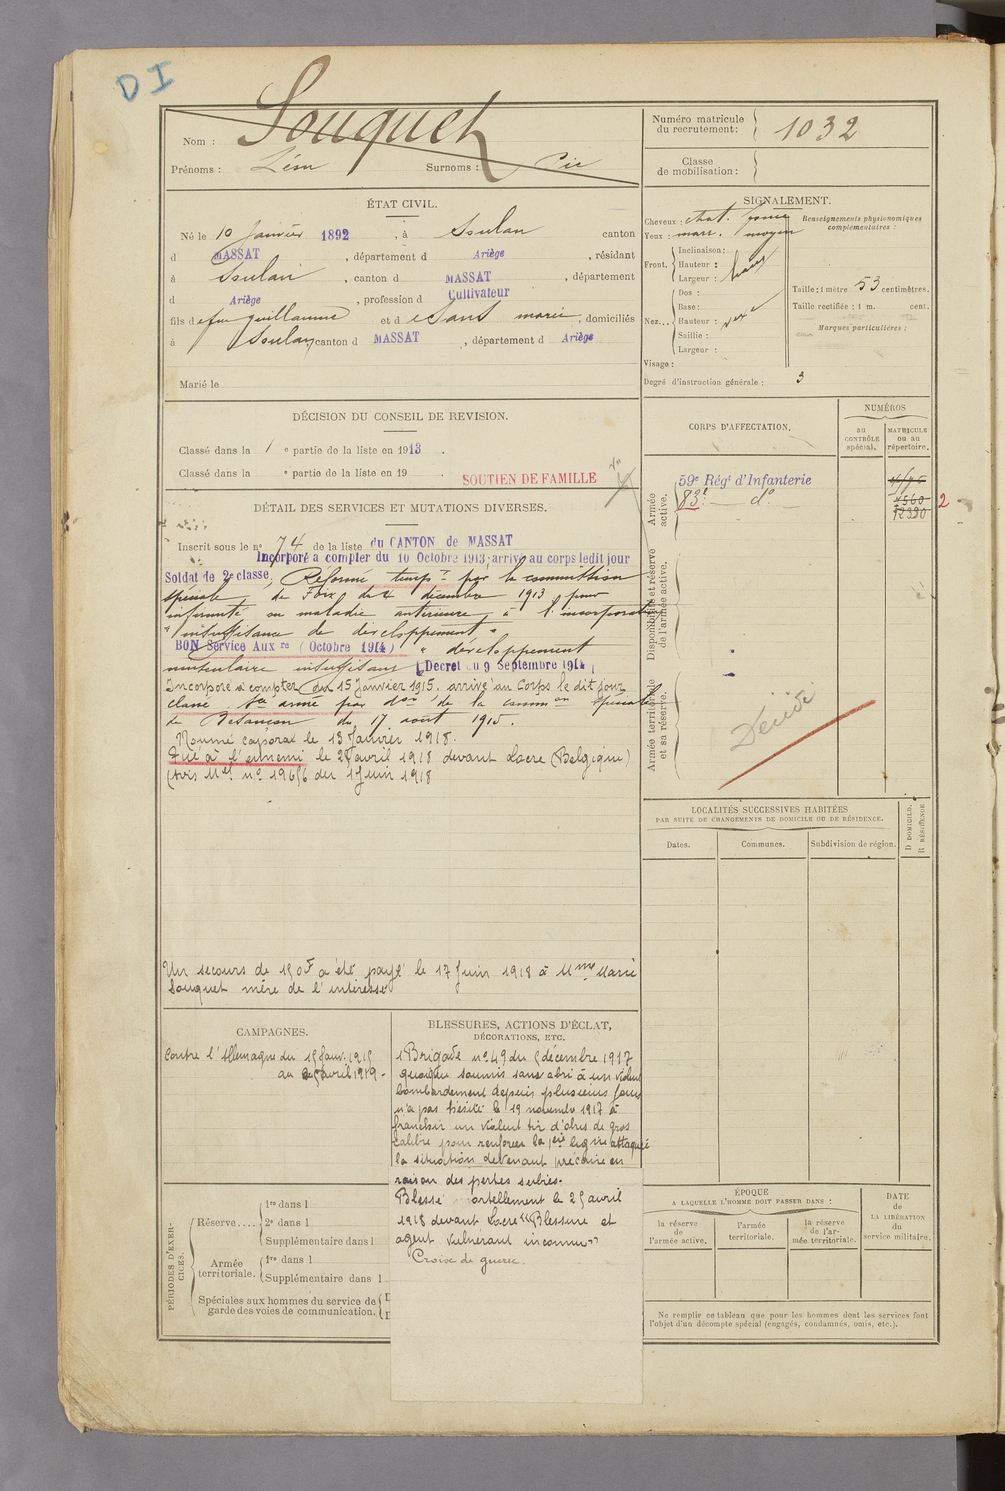 DI
Nom : Souquet
Prénoms : Léon Surnoms : Pic
Numéro matricule
du recrutement : 1032
Classe
de mobilisation :
ÉTAT CIVIL.
Né le 10 Janvier 1892, à Soulan canton
d MASSAT, département d Ariège, résidant
à Soulan, canton d MASSAT, département
d Ariège, profession d Cultivateur
fils d e feu Guillaume et d e Sans marie, domiciliés
à Soulan canton d MASSAT, département d Ariège
Marié le
SIGNALEMENT.
Cheveux : chat.
Yeux : marr. moyen
Front. Inclinaison :
Hauteur :
Largeur :
Nez... Dos :
Base :
Hauteur :
Saillie :
Largeur :
Visage :
Renseignements physionomiques
complémentaires :
Taille : 1 mètre 53 centimètres.
Taille rectifiée : 1 m. cent.
Marques particulières :
Degré d'instruction générale : 3
DÉCISION DU CONSEIL DE REVISION.
Classé dans la 1 e partie de la liste en 1913.
Classé dans la e partie de la liste en 19 .
SOUTIEN DE FAMILLE
DÉTAIL DES SERVICES ET MUTATIONS DIVERSES.
Inscrit sous le n° 74 de la liste du CANTON de MASSAT
Incorporé à compter du 10 Octobre 1913, arrivé au corps ledit jour
Soldat de 2e classe, Réformé temp. re par la commission
spéciale de Foix du 4 décembre 1913 pour
infirmité ou maladie antérieure à l'incorporation
"insuffisance de développement"
BON Service Aux re (Octobre 1914) "développement
musculaire insuffisant (Décret du 9 Septembre 1914)
Incorporé à compter du 15 Janvier 1915. arrivé au Corps le dit jour
classé Sce armé par don de la comm on spéciale
de Besançon du 17 août 1915.
Nommé caporal le 13 Janvier 1918.
Tué à l'ennemi le 25 avril 1918 devant Locre (Belgique)
(avis Mel n° 19656 du 1 Juin 1918
Un secours de 150F a été payé le 17 Juin 1918 à Mme Marie
Souquet mère de l'intéressé
CORPS D'AFFECTATION.
NUMÉROS
au
CONTRÔLE
spécial.
MATRICULE
ou au
répertoire.
Armée
active.
59e Régt d'Infanterie
83e do
4560
12330
2
Disponibilité et réserve
de l'armée active.
Armée territoriale
et sa réserve.
Décédé
LOCALITÉS SUCCESSIVES HABITÉES
PAR SUITE DE CHANGEMENTS DE DOMICILE OU DE RÉSIDENCE.
Dates. Communes. Subdivision de région.
D DOMICILE.
R RÉSIDENCE.
CAMPAGNES.
Contre l'Allemagne du 15 Janv. 1915
au 25 avril 1918.
BLESSURES, ACTIONS D'ÉCLAT,
DÉCORATIONS, ETC.
Brigade n° 49 du 5 décembre 1917
quoique soumis sans abri à un violent
bombardement depuis plusieurs jours
n'a pas hésité le 19 novembre 1917 à
franchir un violent tir d'obus de gros
calibre pour renforcer la 1ere ligne attaquée
la situation devenant précaire en
raison des pertes subies.
Blessé mortellement le 25 avril
1918 devant Locre "Blessure et
agent vulnérant inconnu"
Croix de guerre.
PÉRIODES D'EXER-
CICES.
Réserve.... 1re dans l
2e dans l
Supplémentaire dans l
Armée
territoriale. 1re dans l
Supplémentaire dans l
Spéciales aux hommes du service de
garde des voies de communication.
ÉPOQUE
A LAQUELLE L'HOMME DOIT PASSER DANS :
la réserve
de
l'armée active.
l'armée
territoriale.
la réserve
de l'ar-
mée territoriale.
DATE
de
LA LIBÉRATION
du
service militaire.
Ne remplir ce tableau que pour les hommes dont les services font
l'objet d'un décompte spécial (engagés, condamnés, omis, etc.).